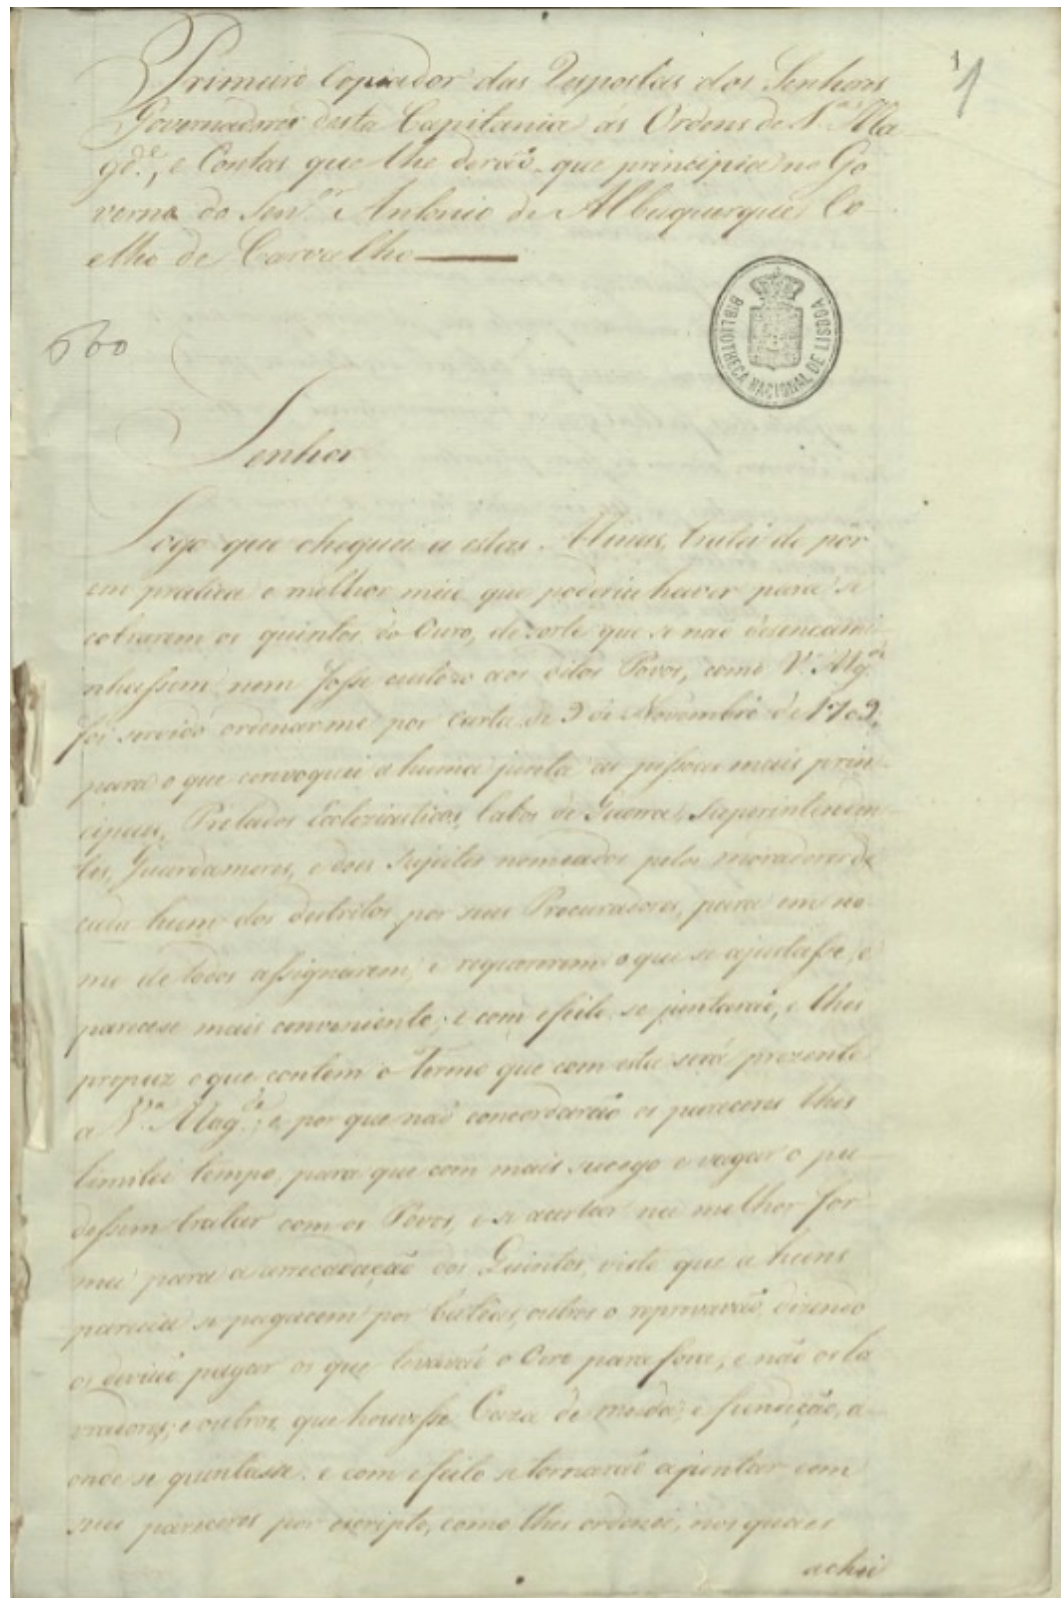 Primeiro Copiador das Respostas dos Senhores
Governadores desta Capitania ás Ordens de S.ª Ma
gd.e, e Contas que lhe derão, que principia no Go
verno do Sen.or Antonio de Albuquerque Co
elho de Carvalho
1
BIBLIOTHECA NACIONAL DE LISBOA
Senhor
Logo que cheguei a estas Minas, tratei de pôr
em pratica o melhor meio que poderia haver para se
cobrarem os quintos do Ouro, de sorte que se não desencami
nhassem nem fosse custozo aos ditos Povos, como V. Mg.de
foi servido ordenarme por carta de 9 de Novembro de 1709,
para o que convoquei a huma junta as pessoas mais prin
cipaes, Prelados Ecclesiasticos, Cabos de Guerra, Superintenden
tes, Guardamores, e dous sujeitos nomeados pelos moradores de
cada hum dos destritos por seus Procuradores, para em no
me de todos assignarem, e requererem o que se ajustasse, e
parecese mais conveniente; e com efeito se juntarão, e lhes
propuz o que contem o Termo que com esta será prezente
a V.ª Mag.de; e por que não concordarão os pareceres lhes
limitei tempo, para que com mais socego e vagar o pu
dessem tratar com os Povos, e se acertar na melhor for
ma para a arrecadação dos Quintos, visto que a huns
parecia se pagacem por Batêas, outros o reprovavão, dizendo
os devião pagar os que levavão o Ouro para fora, e não os la
vradores; e outros que houvesse Caza de moeda, e fundição, a
onde se quintasse: e com efeito se tornarão a juntar com
seus pareceres por escripto, como lhes ordenei, nos quaes
achei